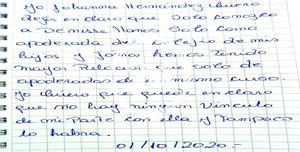 Yo Johanna Hernandez quiero
deja en claro que solo conosco
a Denisse Llanos Solo como
apoderada del colejio de mis
hijos y Jamas hemos tenido
mayor Relacion que solo de
apoderadas de el mismo curso.
Yo quiero que quede en claro
que no hay ningun Vinculo
de mi Parte con ella y Tampoco
lo habra.
01/10/2020-